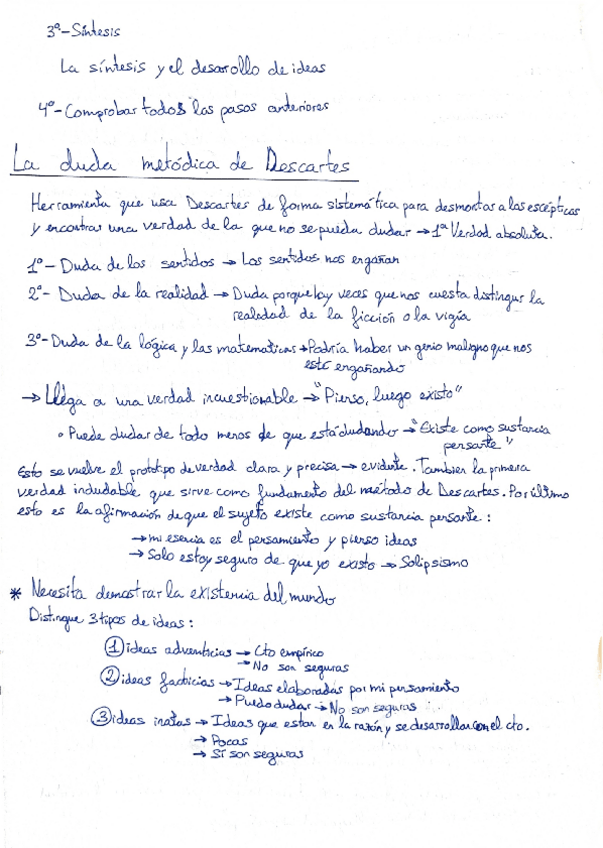 3º-Síntesis
La síntesis y el desarollo de ideas
4º-Comprobar todos los pasos anteriores
La duda metódica de Descartes
Herramienta que usa Descartes de forma sistemática para desmontar a los escépticos
y encontrar una verdad de la que no se pueda dudar → 1ª Verdad absoluta.
1º- Duda de los sentidos → Los sentidos nos engañan
2º- Duda de la realidad → Duda porque hay veces que nos cuesta distinguir la
realidad de la ficción o la vigia
3º-Duda de la lógica y las matematicas → Podría haber un genio maligno que nos
esté engañando
→ Llega a una verdad incuestionable → "Pienso, luego existo"
• Puede dudar de todo menos de que está dudando → "Existe como sustancia
pensante"
Esto se vuelve el prototipo de verdad clara y precisa → evidente. Tambien la primera
verdad indudable que sirve como fundamento del método de Descartes. Por último
esto es la afirmación de que el sujeto existe como sustancia pensante:
→ mi esencia es el pensamiento y pienso ideas
→ Solo estoy seguro de que yo existo → Solipsismo
* Necesita demostrar la existencia del mundo
Distingue 3 tipos de ideas:
1 ideas adventicias → Cto empírico
→ No son seguras
2 ideas facticias → Ideas elaboradas por mi pensamiento
→ Puedo dudar → No son seguras
3 ideas inatas → Ideas que estan en la razón y se desarrollan con el cto.
→ Pocas
→ Sí son seguras